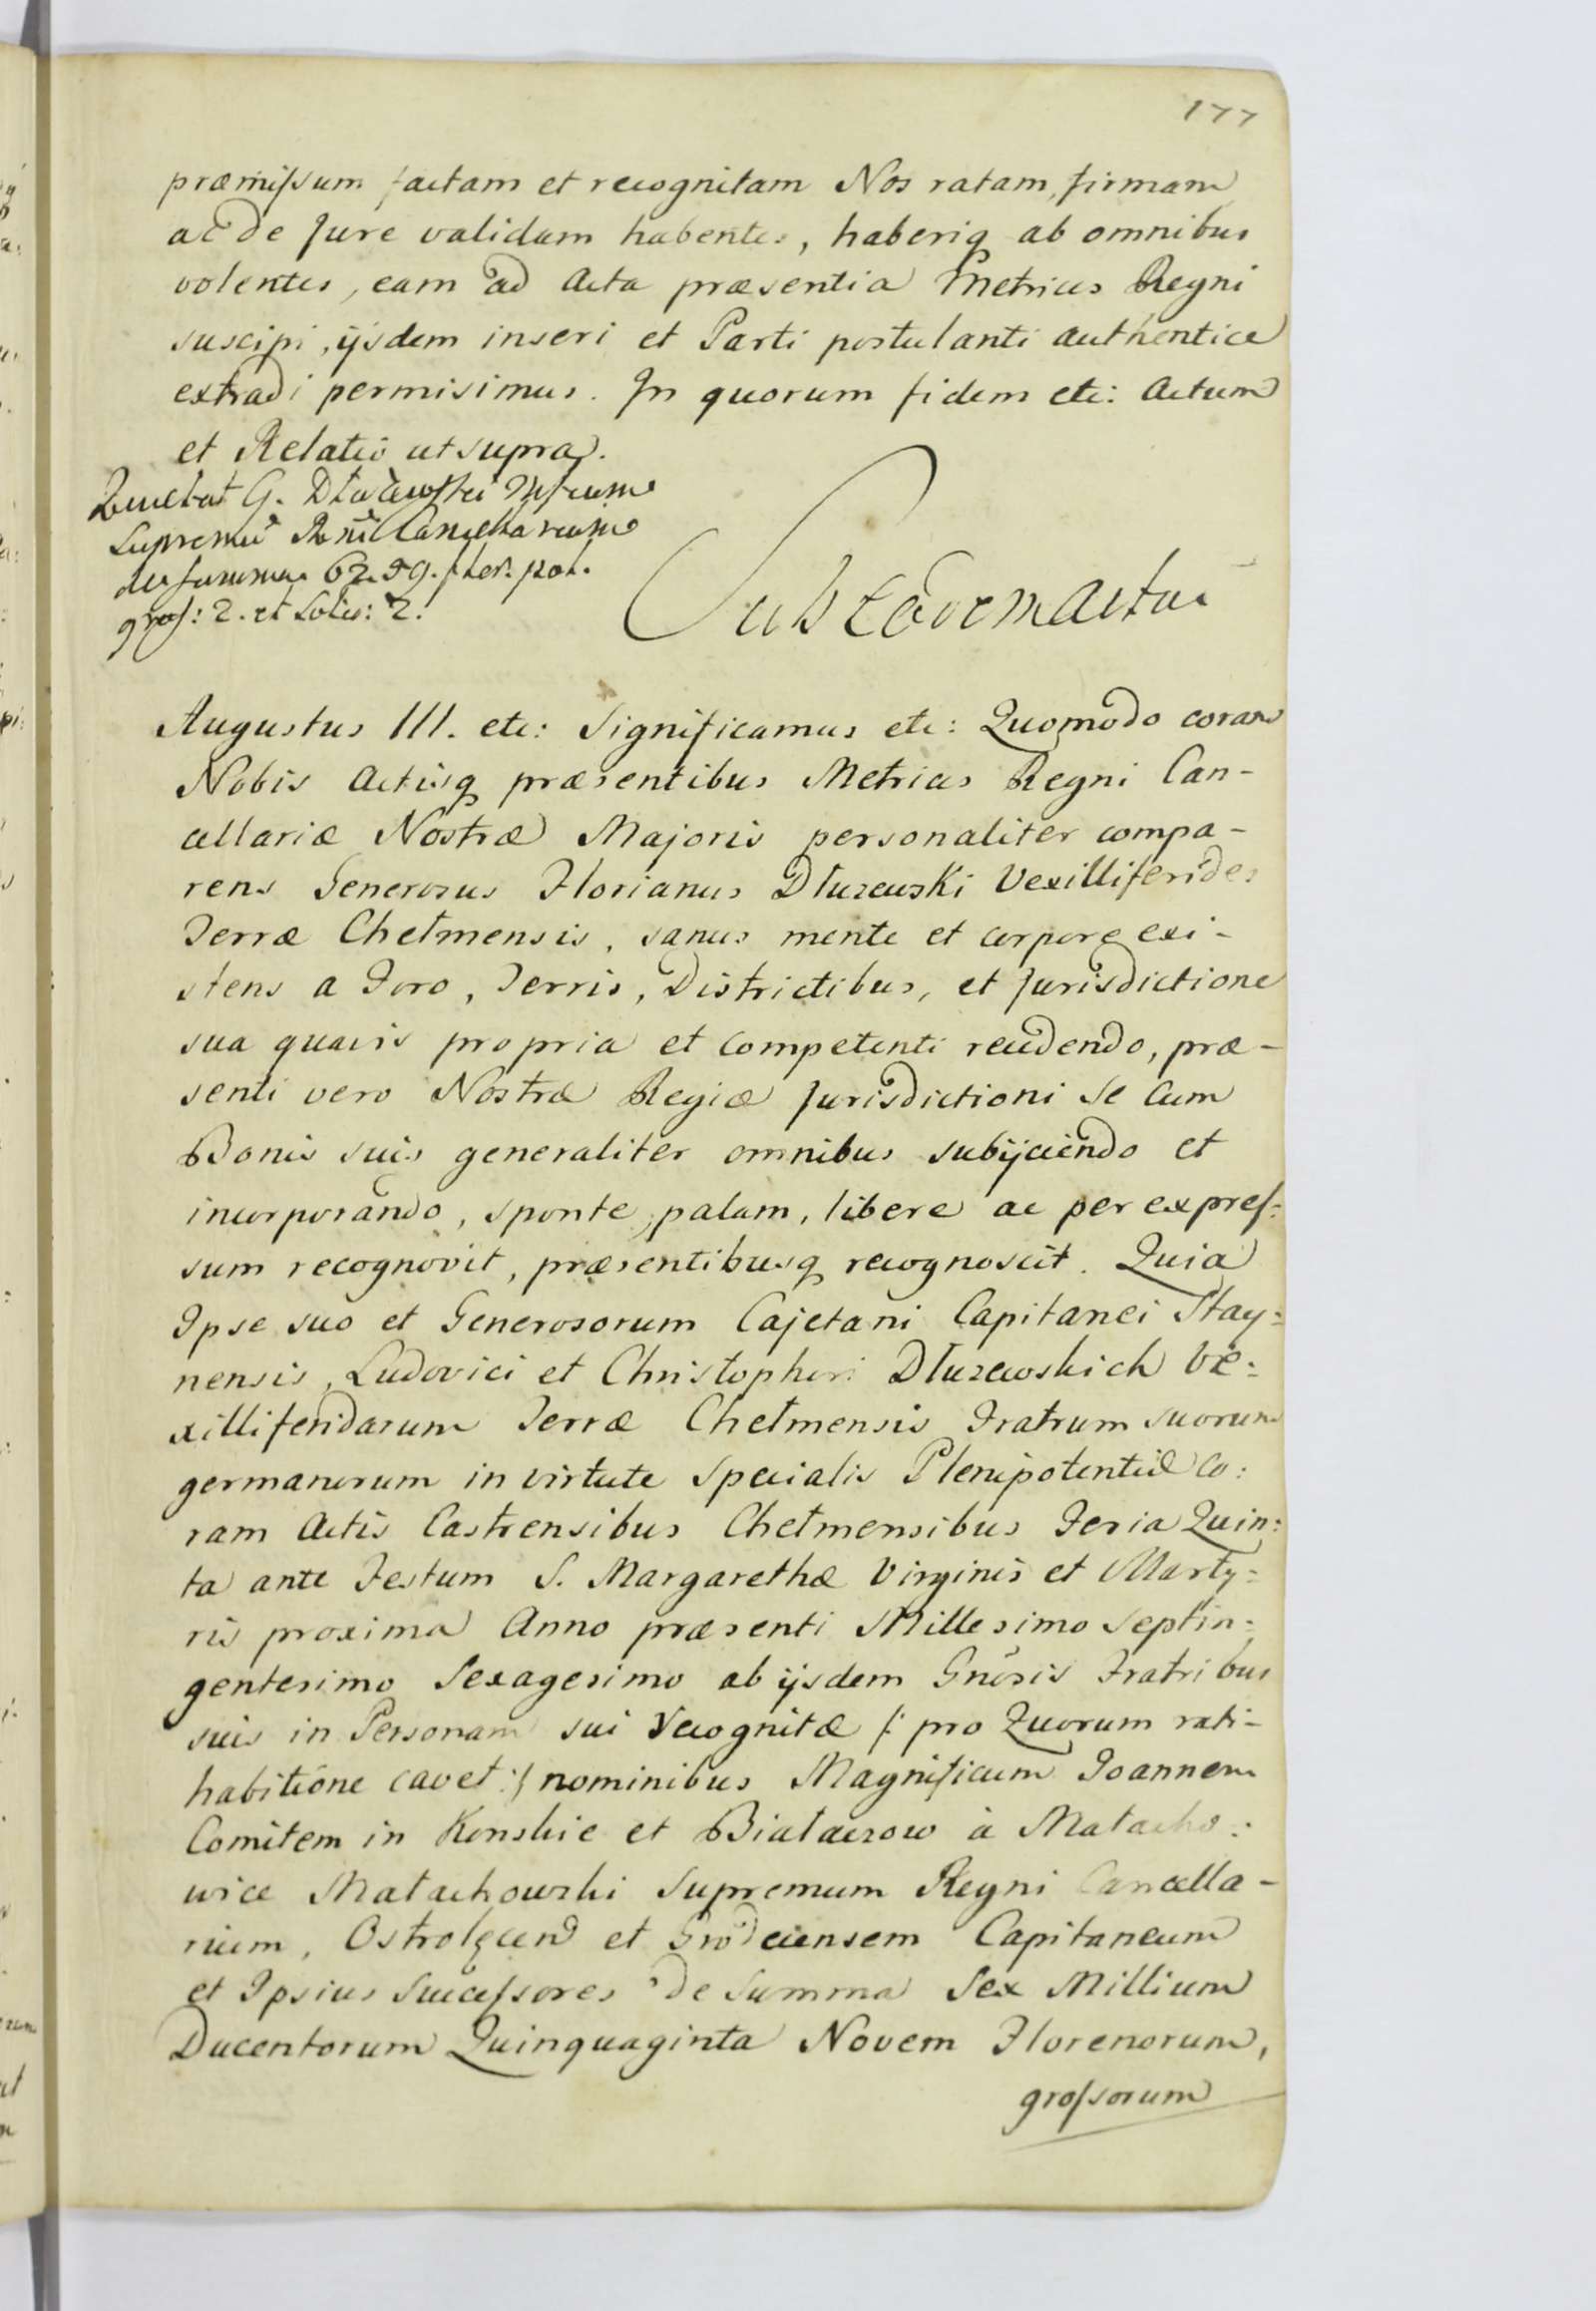 177
præmissum factam et recognitam Nos ratam, firmam
ac de Jure validam habentes, haberiq ab omnibus
volentes, eam ad Acta præsentia Metrices Regni
suscipi, ijsdem inseri et Parti postulanti authentice
extradi permisimus. In quorum fidem etc: Actum
et Relatio ut supra.
Quietat G. Dłużewski Illustrum
Supremū Rni Cancellarium
de summa 6259. flor. pol.
gross: 2. et Solid: 2.
Sub eodem actu
Augustus III. etc: Significamus etc: Quomodo coram
Nobis Actisq præsentibus Metrices Regni Can-
cellariæ Nostræ Majoris personaliter compa-
rens Generosus Florianus Dłuzewski Vexilliferides
Terræ Chełmensis, sanus mente et corpore exi-
stens a Foro, Terris, Districtibus, et Jurisdictione
sua quavis propria et competenti recedendo, præ-
senti vero Nostræ Regiæ Jurisdictioni se cum
Bonis suis generaliter omnibus subijciendo et
incorporando, sponte, palam, libere ac per expres:
sum recognovit, præsentibusq recognoscit. Quia
Ipse suo et Generosorum Cajetani Capitanei Stay:
nensis, Ludovici et Christophori Dłuzewskich Ve:
xilliferidarum Terræ Chełmensis Fratrum suorum
germanorum in virtute specialis Plenipotentiæ Co:
ram Actis Castrensibus Chełmensibus Feria Quin:
ta ante Festum S. Margarethæ Virginis et Marty:
ris proxima Anno præsenti Millesimo Septin:
gentesimo Sexagesimo ab ijsdem Gnosis Fratribus
suis in Personam sui recognitæ /: pro Quorum rati-
habitione cavet :/ nominibus Magnificum Joannem
Comitem in Konskie et Białaczow à Małacho:
wice Małachowski Supremum Regni Cancella-
rium, Ostrołęcen et Grodecensem Capitaneum
et Ipsius Successores de Summa Sex Millium
Ducentorum Quinquaginta Novem Florenorum,
grossorum